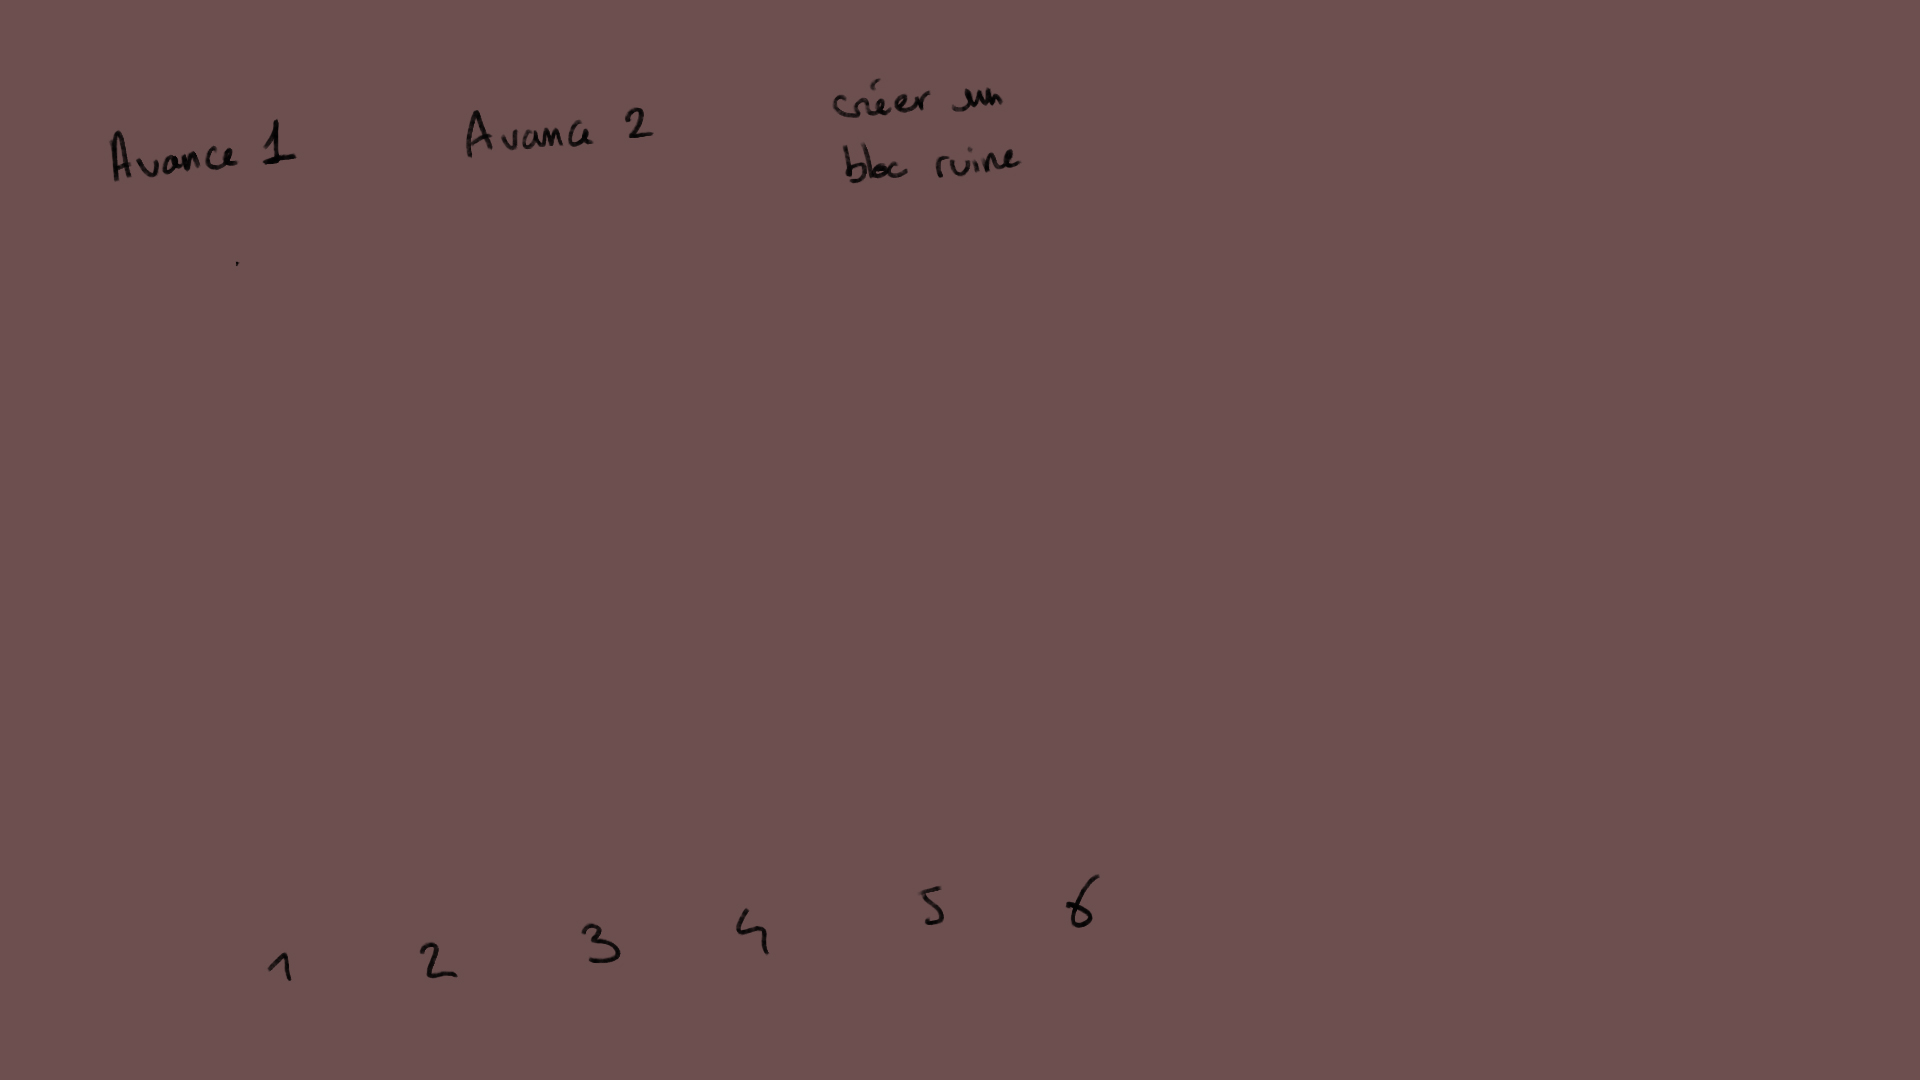 Avance 1
Avance 2
créer un
bloc ruine
1 2 3 4 5 6